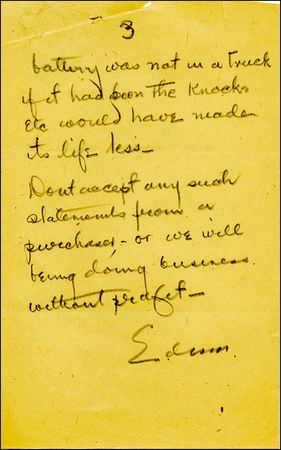 3
battery was not in a truck
if it had been the Knocks
etc would have made
its life less—
Dont accept any such
statements from a
purchaser— or we will
being doing business
without profit—
Edison